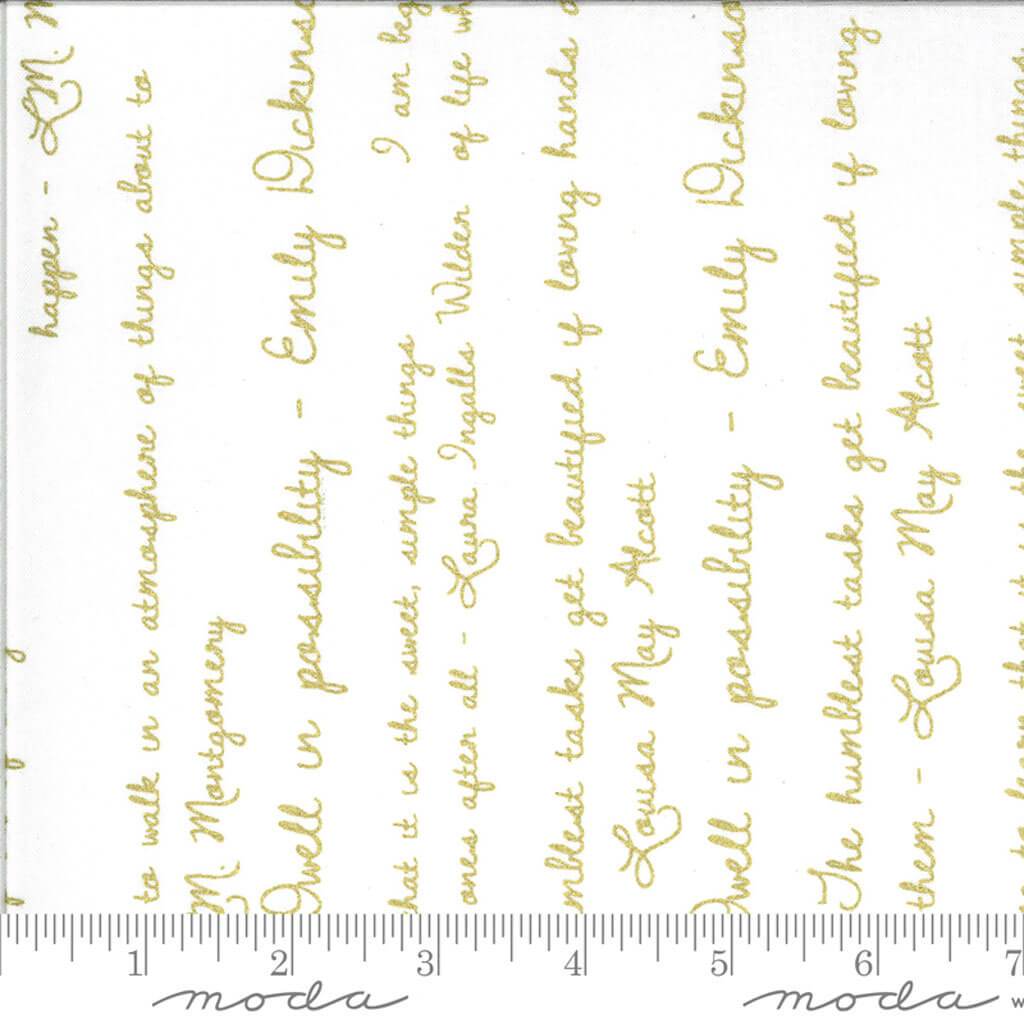 happen - L.M. M
to walk in an atmosphere of things about to
M. Montgomery
Dwell in possibility - Emily Dickinso
hat it is the sweet, simple things
I am beg
ones after all - Laura Ingalls Wilder
of life wh
mblest tasks get beautified if loving hands
Louisa May Alcott
Dwell in possibility - Emily Dickinso
The humblest tasks get beautified if loving
them - Louisa May Alcott
that it is the sweet, simple things
1 2 3 4 5 6 7
moda moda w